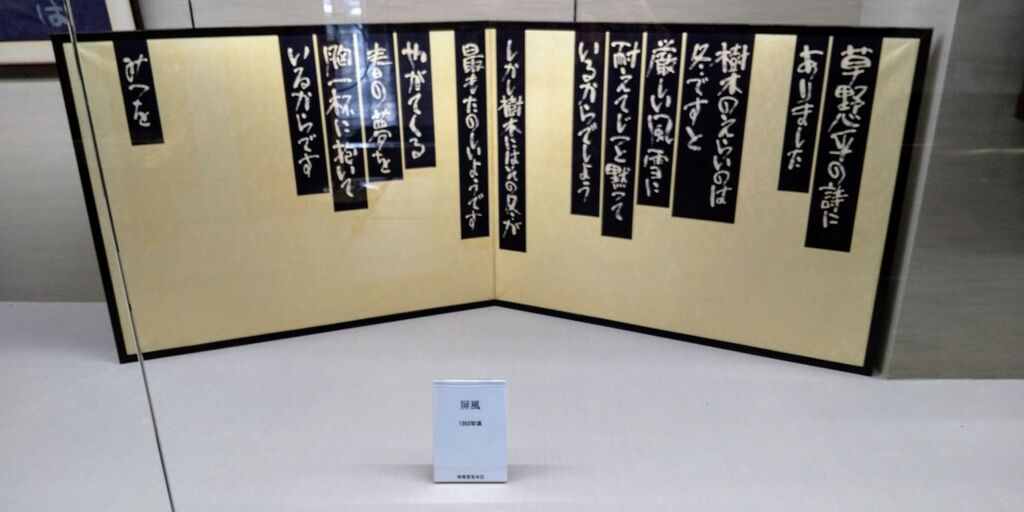 草野心平の詩に
ありました
樹木のえらいのは
冬ですと
厳しい風雪に
耐えてじっと黙って
いるからでしょう
しかし樹木にはその冬が
最もたのしいようです
やがてくる
春の夢を
胸一杯に抱いて
いるからです
みつを
は
屏風
1960年頃